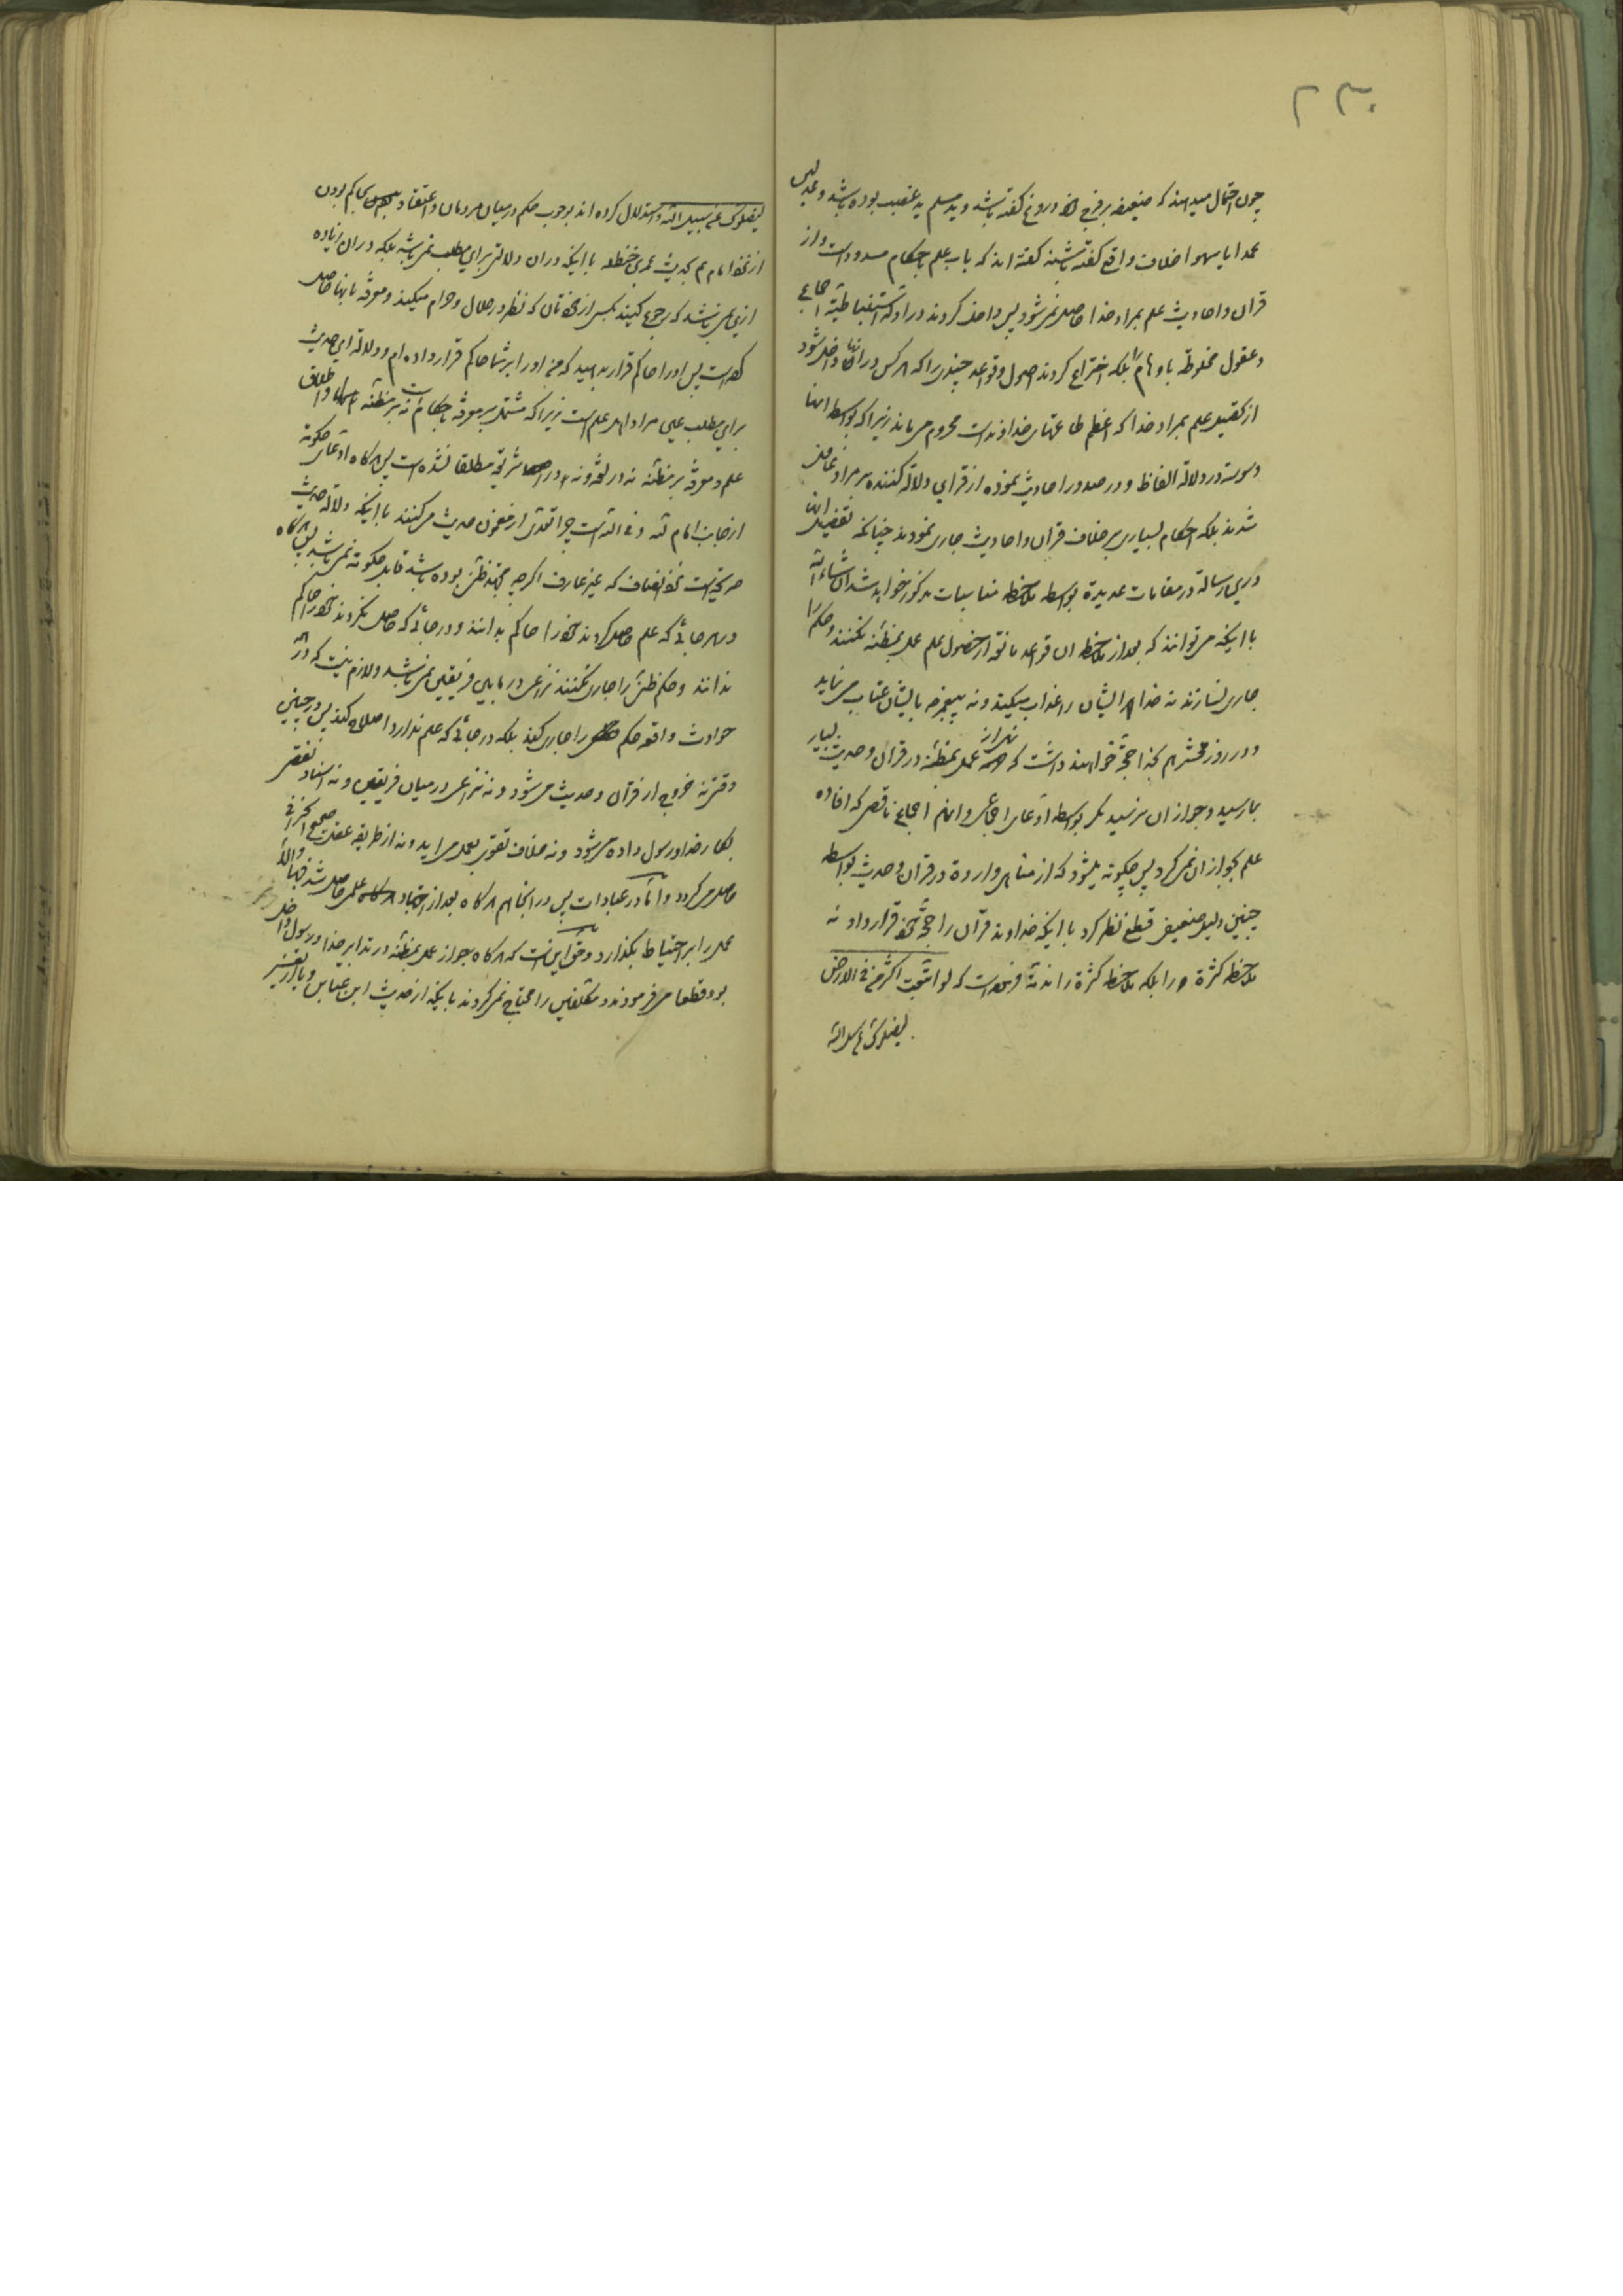 ۲۳۰
چون احتمال میدهند که ضعیفه بر فرج دروغ گفته باشد و ید مسلم ید غصب بوده باشد و عدلین
عمدا یا سهوا خلاف واقع گفته باشند گفته اند که باب علم باحکام مسدود است و از
قرآن و احادیث علم بمراد خدا حاصل نمیشود پس داخل کردند در ادله استنباطیة اجماع
و عقول مخلوطه باوهام را بلکه اختراع کردند اصول و قواعد چندی را که هر کس در انها داخل شود
از تحصیل علم بمراد خدا که اعظم طاعتهای خداوند است محروم می ماند زیرا که بواسطه انها
وسوسه در دلالة الفاظ و در صدور احادیث نموده از قراین دلالة کننده بر مراد غافل
شدند بلکه احکام بسیاری بر خلاف قرآن و احادیث جاری نمودند چنانکه تفصیل آن
درین رسالة در مقامات عدیدة بواسطه ملاحظه مناسبات مذکور خواهد شد ان شاء الله
با اینکه می توانند که بعد از ملاحظه ان قواعد مانعه از حصول علم عمل بمظنه نکنند و حکم را
جاری نسازند نه خدا ایشان را عذاب میکند و نه پیغمبر با ایشان عتاب می نماید
و در روز محشر هم حجة خواهند داشت که نهی از عمل بمظنه در قرآن و حدیث بسیار
بما رسید و جواز ان نرسید مگر بواسطه ادعای اجماعی و انهم اجماع ناقص که افاده
علم بجواز ان نمی کرد پس چگونه میشود که از مناهی واردة در قرآن و حدیث بواسطه
چنین دلیل ضعیفی قطع نظر کرد با اینکه خداوند قرآن را حجة قرار داد نه
ملاحظه کثرة را بلکه ملاحظه کثرة را فرموده است که لو اتبعت اکثر من فی الارض
لیضلوک عن سبیل الله
لیضلوک عن سبیل الله و استدلال کرده اند بوجوب حکم در میان مردمان و اعتقاد بحاکم بودن
از امام هم بحدیث عمر بن حنظله با اینکه در ان دلالتی برای مطلب نمی باشد بلکه در ان زیاده
ازین نمی باشد که رجوع کنید بکسی از خودتان که نظر در حلال و حرام میکند و معرفة بانها حاصل
کرده است پس او را حاکم قرار بدهید که من او را بر شما حاکم قرار داده ام و دلالة این حدیث
برای مطلب عین مراد اهل علم است زیرا که مشتمل بر معرفة باحکام است نه بر مظنه و اطلاق
علم و معرفة بر مظنه نه در لغة و نه در شریعة مطلقا نشده است پس هرگاه ادعای حکومة
از جانب امام چرا تعدی از مضمون حدیث می کنند با اینکه دلالة حدیث
صریح است که غیر عارف اگر چه مجتهد ظن بوده باشد قابل حکومة نمی باشد پس هرگاه
در هر جائی که علم حاصل کردند خود را حاکم بدانند و در جائی که حاصل نکردند خود را حاکم
ندانند و حکم ظنی را جاری نکنند نزاعی در مابین فریقین نمی باشد و لازم نیست که در
حوادث واقعه حکم را جاری کنند بلکه در جائی که علم ندارد اصلاح کند پس در چنین
وقتی نه خروج از قرآن و حدیث می شود و نه نزاعی در میان فریقین و نه اسناد نقصی
بکار خدا و رسول داده می شود و نه خلاف تقوی بعمل می اید و نه از طریقه عقل
حاصل می گردد و اما در عبادات پس در انجا هم هرگاه بعد از اجتهاد علمی حاصل شد فبها و الا
عمل را بر احتیاط بگذارد و حق این است که هرگاه جواز عمل بمظنه در تدابیر خدا و رسول داخل
بود قطعا می فرمودند و مکلفین را محتاج نمی کردند باینکه از حدیث ابن عباس